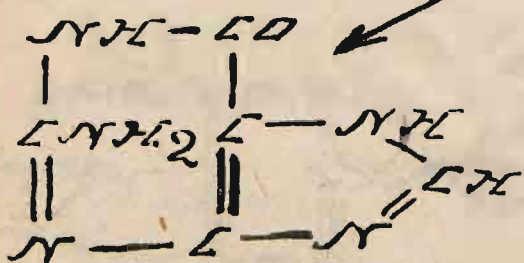 NH CO
CNH2 C NH
CH
N C N